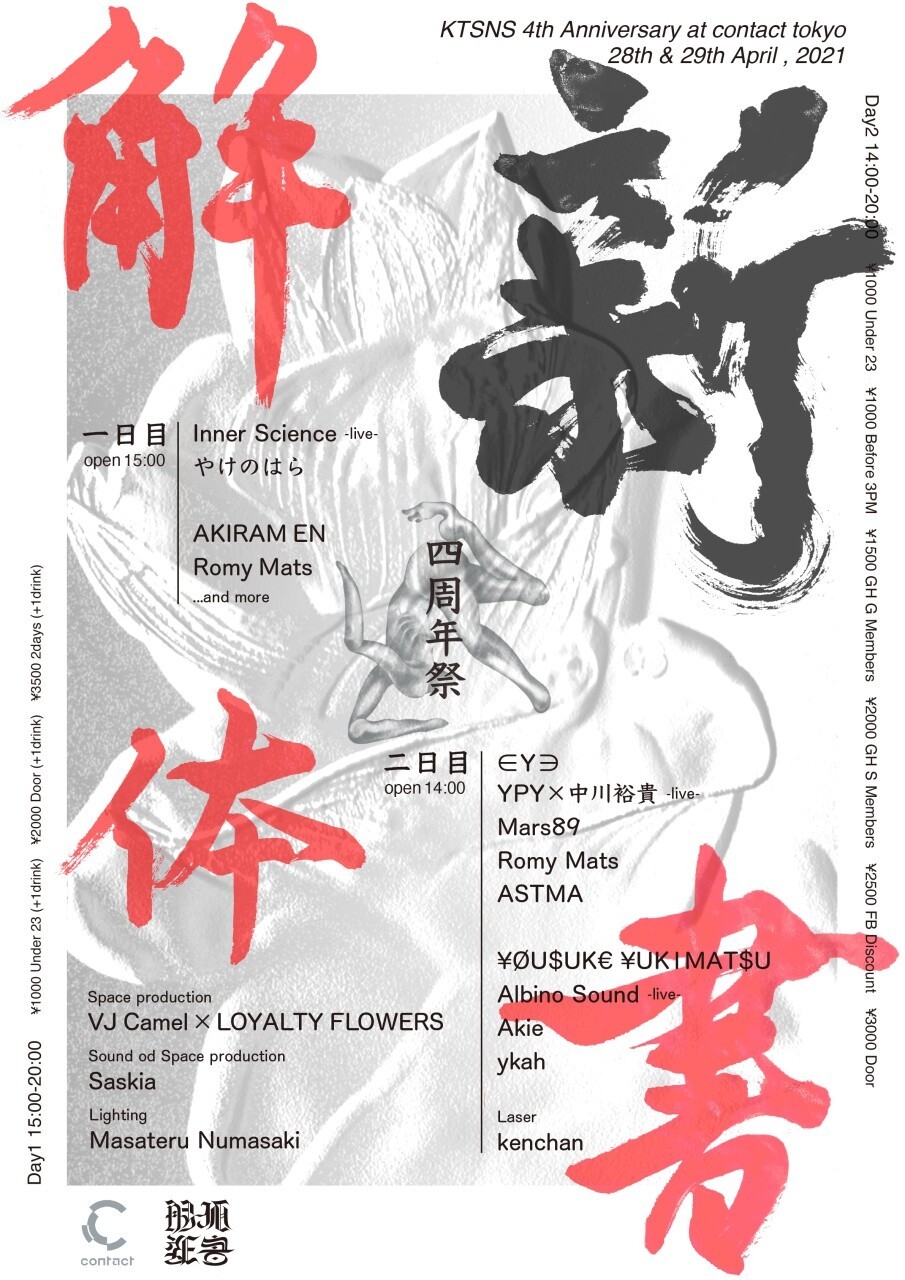 KTSNS 4th Anniversary at contact tokyo
28th & 29th April , 2021
解
体
新
書
一日目
open 15:00
Inner Science -live-
やけのはら
AKIRAM EN
Romy Mats
...and more
四周年祭
二日目
open 14:00
∈Y∋
YPY×中川裕貴 -live-
Mars89
Romy Mats
ASTMA
¥ØU$UK€ ¥UK1MAT$U
Albino Sound -live-
Akie
ykah
Laser
kenchan
Space production
VJ Camel × LOYALTY FLOWERS
Sound od Space production
Saskia
Lighting
Masateru Numasaki
Day1 15:00-20:00 ¥1000 Under 23 (+1drink) ¥2000 Door (+1drink) ¥3500 2days (+1drink)
Day2 14:00-20:00 ¥1000 Under 23 ¥1000 Before 3PM ¥1500 GH G Members ¥2000 GH S Members ¥2500 FB Discount ¥3000 Door
contact